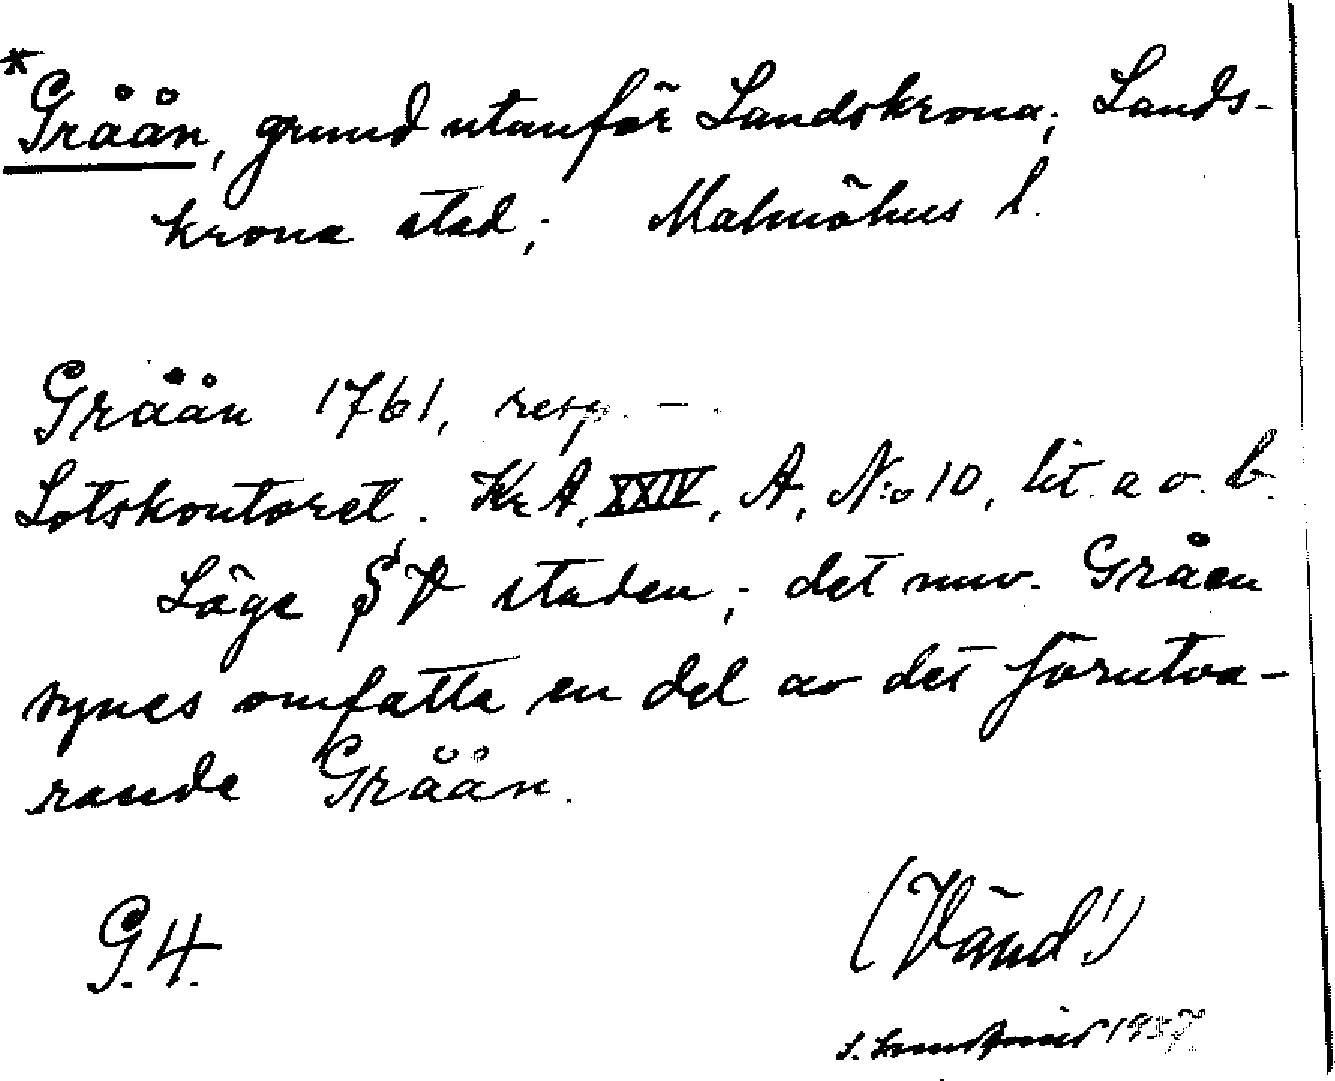 *Gråån, grund utanför Landskrona; Lands-
krona stad; Malmöhus l.
Gråån 1761, resp. —.
Lotskontoret. KrA, XXIV, A, N:o 10, lit. a o. b.
Läge SV staden; det nuv. Gråen
synes omfatta en del av det förutva-
rande Gråån.
G.4.
(Vänd!)
1937